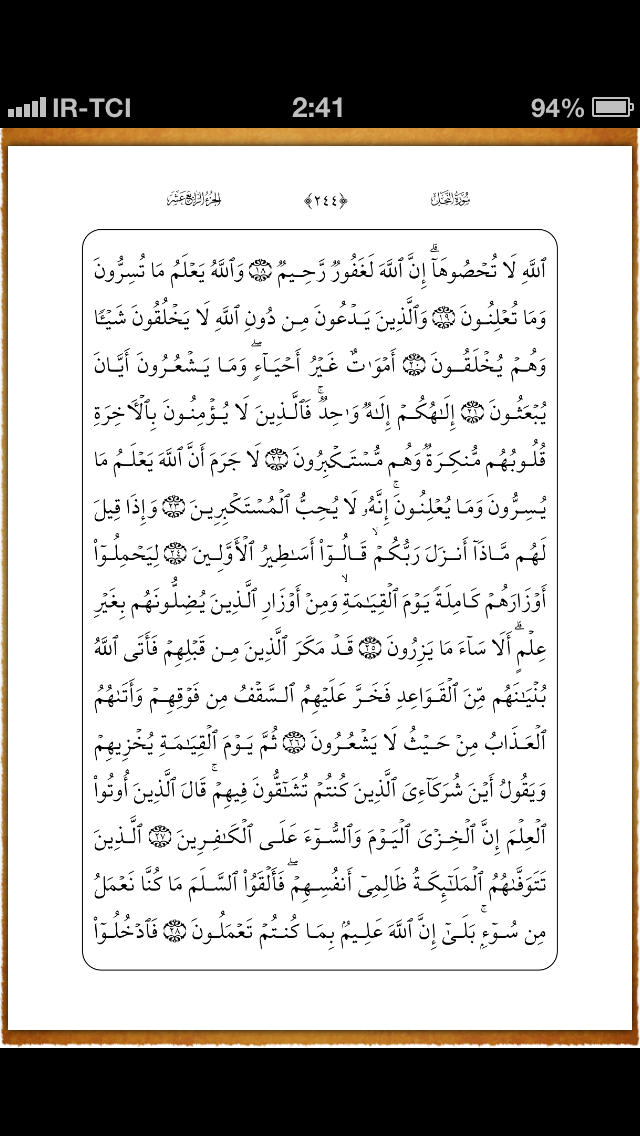 IR-TCI 2:41 94%
سُورَةُ النَّحۡل ﴿٢٤٤﴾ الجُزءُ الرَّابِعُ عَشَرَ
ٱللَّهِ لَا تُحۡصُوهَآۗ إِنَّ ٱللَّهَ لَغَفُورٞ رَّحِيمٞ ١٨ وَٱللَّهُ يَعۡلَمُ مَا تُسِرُّونَ
وَمَا تُعۡلِنُونَ ١٩ وَٱلَّذِينَ يَدۡعُونَ مِن دُونِ ٱللَّهِ لَا يَخۡلُقُونَ شَيۡـٔٗا
وَهُمۡ يُخۡلَقُونَ ٢٠ أَمۡوَٰتٌ غَيۡرُ أَحۡيَآءٖۖ وَمَا يَشۡعُرُونَ أَيَّانَ
يُبۡعَثُونَ ٢١ إِلَٰهُكُمۡ إِلَٰهٞ وَٰحِدٞۚ فَٱلَّذِينَ لَا يُؤۡمِنُونَ بِٱلۡأٓخِرَةِ
قُلُوبُهُم مُّنكِرَةٞ وَهُم مُّسۡتَكۡبِرُونَ ٢٢ لَا جَرَمَ أَنَّ ٱللَّهَ يَعۡلَمُ مَا
يُسِرُّونَ وَمَا يُعۡلِنُونَۚ إِنَّهُۥ لَا يُحِبُّ ٱلۡمُسۡتَكۡبِرِينَ ٢٣ وَإِذَا قِيلَ
لَهُم مَّاذَآ أَنزَلَ رَبُّكُمۡ قَالُوٓاْ أَسَٰطِيرُ ٱلۡأَوَّلِينَ ٢٤ لِيَحۡمِلُوٓاْ
أَوۡزَارَهُمۡ كَامِلَةٗ يَوۡمَ ٱلۡقِيَٰمَةِ وَمِنۡ أَوۡزَارِ ٱلَّذِينَ يُضِلُّونَهُم بِغَيۡرِ
عِلۡمٍۗ أَلَا سَآءَ مَا يَزِرُونَ ٢٥ قَدۡ مَكَرَ ٱلَّذِينَ مِن قَبۡلِهِمۡ فَأَتَى ٱللَّهُ
بُنۡيَٰنَهُم مِّنَ ٱلۡقَوَاعِدِ فَخَرَّ عَلَيۡهِمُ ٱلسَّقۡفُ مِن فَوۡقِهِمۡ وَأَتَىٰهُمُ
ٱلۡعَذَابُ مِنۡ حَيۡثُ لَا يَشۡعُرُونَ ٢٦ ثُمَّ يَوۡمَ ٱلۡقِيَٰمَةِ يُخۡزِيهِمۡ
وَيَقُولُ أَيۡنَ شُرَكَآءِيَ ٱلَّذِينَ كُنتُمۡ تُشَٰٓقُّونَ فِيهِمۡۚ قَالَ ٱلَّذِينَ أُوتُواْ
ٱلۡعِلۡمَ إِنَّ ٱلۡخِزۡيَ ٱلۡيَوۡمَ وَٱلسُّوٓءَ عَلَى ٱلۡكَٰفِرِينَ ٢٧ ٱلَّذِينَ
تَتَوَفَّىٰهُمُ ٱلۡمَلَٰٓئِكَةُ ظَالِمِيٓ أَنفُسِهِمۡۖ فَأَلۡقَوُاْ ٱلسَّلَمَ مَا كُنَّا نَعۡمَلُ
مِن سُوٓءِۭۚ بَلَىٰٓ إِنَّ ٱللَّهَ عَلِيمُۢ بِمَا كُنتُمۡ تَعۡمَلُونَ ٢٨ فَٱدۡخُلُوٓاْ